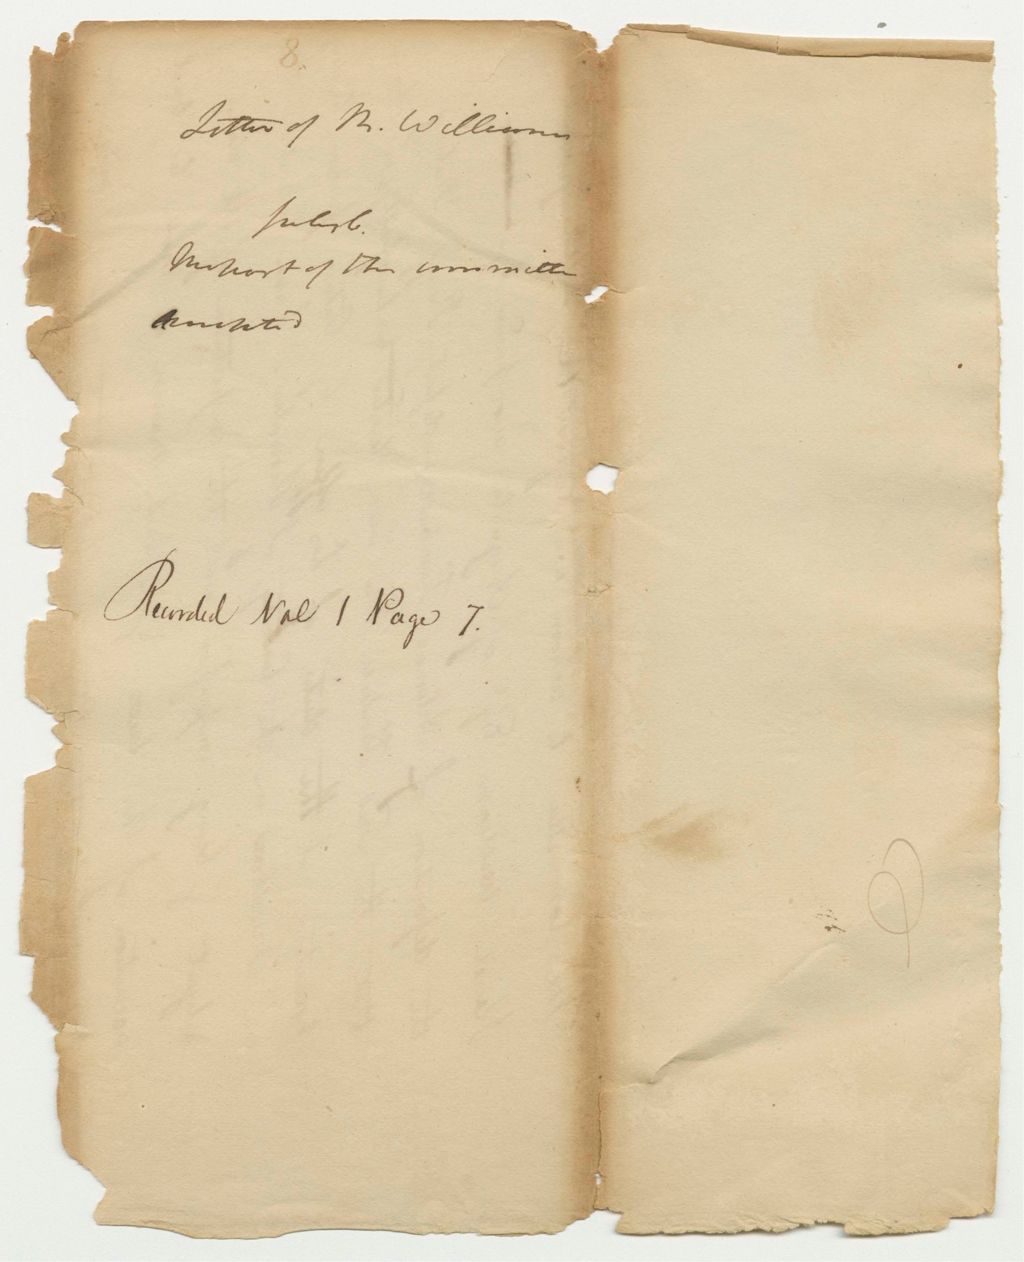 8.
Letter of R. Williams
July 6.
Report of the committee
accepted
Recorded Vol 1 Page 7.